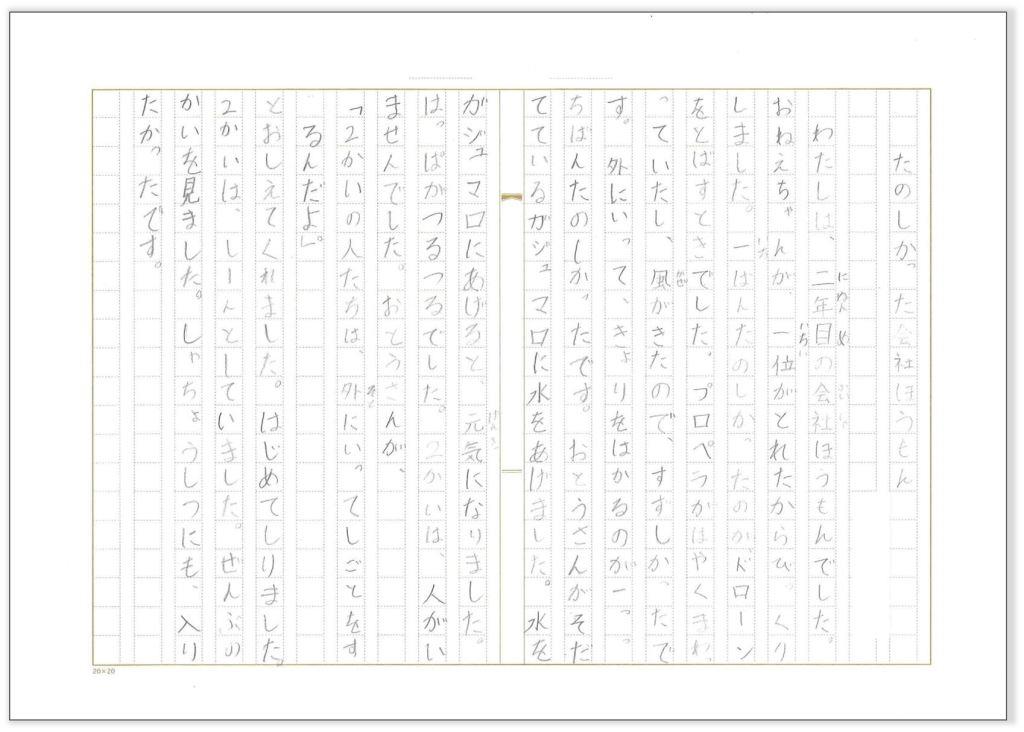 たのしかった会社ほうもん
わたしは、二年目の会社ほうもんでした。
おねえちゃんが、一位がとれたからびっくり
しました。一ばんたのしかったのが、ドローン
をとばすときでした。プロペラがはやくまわ
っていたし、風がきたので、すずしかったで
す。外にいって、きょりをはかるのが
ちばんたのしかったです。おとうさんがそだ
てているガジュマロに水をあげました。水を
ガジュマロにあげろと、元気になりました。
はっぱがつるつるでした。２かいは、人がい
ませんでした。おとうさんが、
「２かいの人たちは、外にいってしごとをす
るんだよ」。
とおしえてくれました。はじめてしりました。
２かいは、しーんとしていました。ぜんぶの
かいを見ました。しゃちょうしつにも、入り
たかったです。
20×20